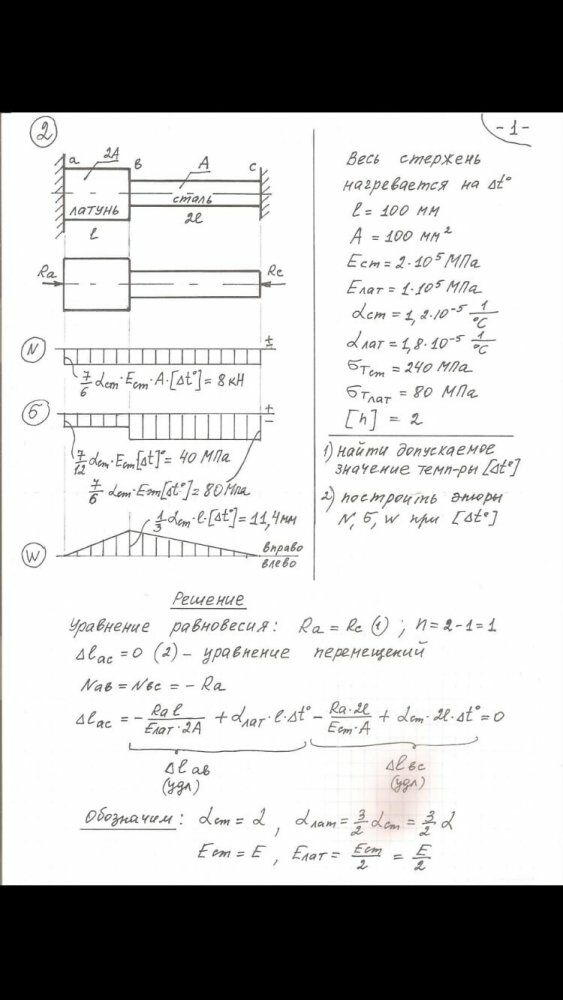 2
- 1 -
a
2A
в
A
с
латунь
сталь
l
2l
Ra
Rc
N
±
7/6 αст·Eст·A·[Δt°] = 8 кН
б
+
−
7/12 αст·Eст[Δt]° = 40 МПа
7/6 αст·Eст[Δt°] = 80 МПа
1/3 αст·l·[Δt°] = 11,4 мм
W
вправо
влево
Весь стержень
нагревается на Δt°
l = 100 мм
A = 100 мм²
Eст = 2·10⁵ МПа
Eлат = 1·10⁵ МПа
αст = 1,2·10⁻⁵ 1/°С
αлат = 1,8·10⁻⁵ 1/°С
бТст = 240 МПа
бТлат = 80 МПа
[h] = 2
1) найти допускаемое
значение темп-ры [Δt°]
2) построить эпюры
N, б, W при [Δt°]
Решение
Уравнение равновесия: Ra = Rc (1) ; n = 2-1 = 1
Δlac = 0 (2) – уравнение перемещений
Nав = Nвс = − Ra
Δlac = − Ra l/Eлат·2A + αлат·l·Δt° − Ra·2l/Eст·A + αст·2l·Δt° = 0
Δl ав
(удл)
Δl вс
(удл)
Обозначим: αст = α, αлат = 3/2 αст = 3/2 α
Eст = E, Eлат = Eст/2 = E/2